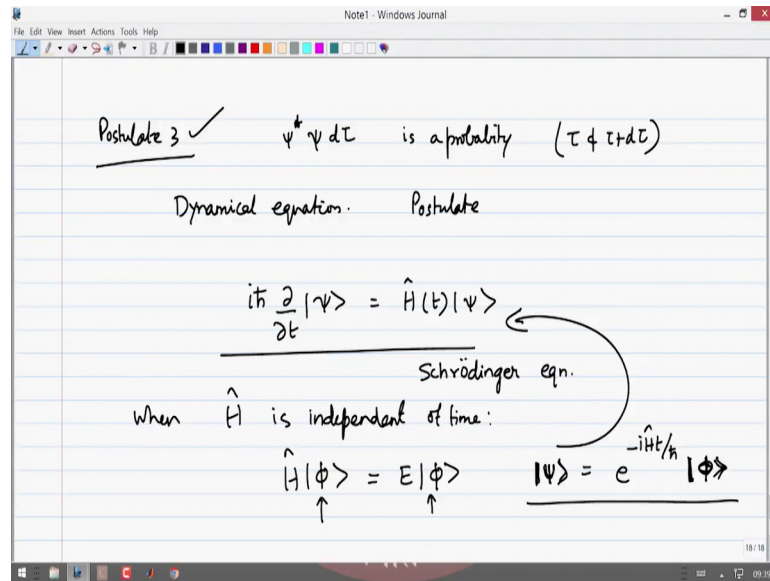 Note1 - Windows Journal
File Edit View Insert Actions Tools Help
B I
Postulate 3 ✓ ψ* ψ dτ is a probality (τ & τ+dτ)
Dynamical equation. Postulate
iħ ∂/∂t |ψ> = Ĥ(t)|ψ>
Schrödinger eqn.
when Ĥ is independent of time:
Ĥ|ϕ> = E|ϕ> |ψ> = e^{-iĤt/ħ} |ϕ>
18 / 18
09:39